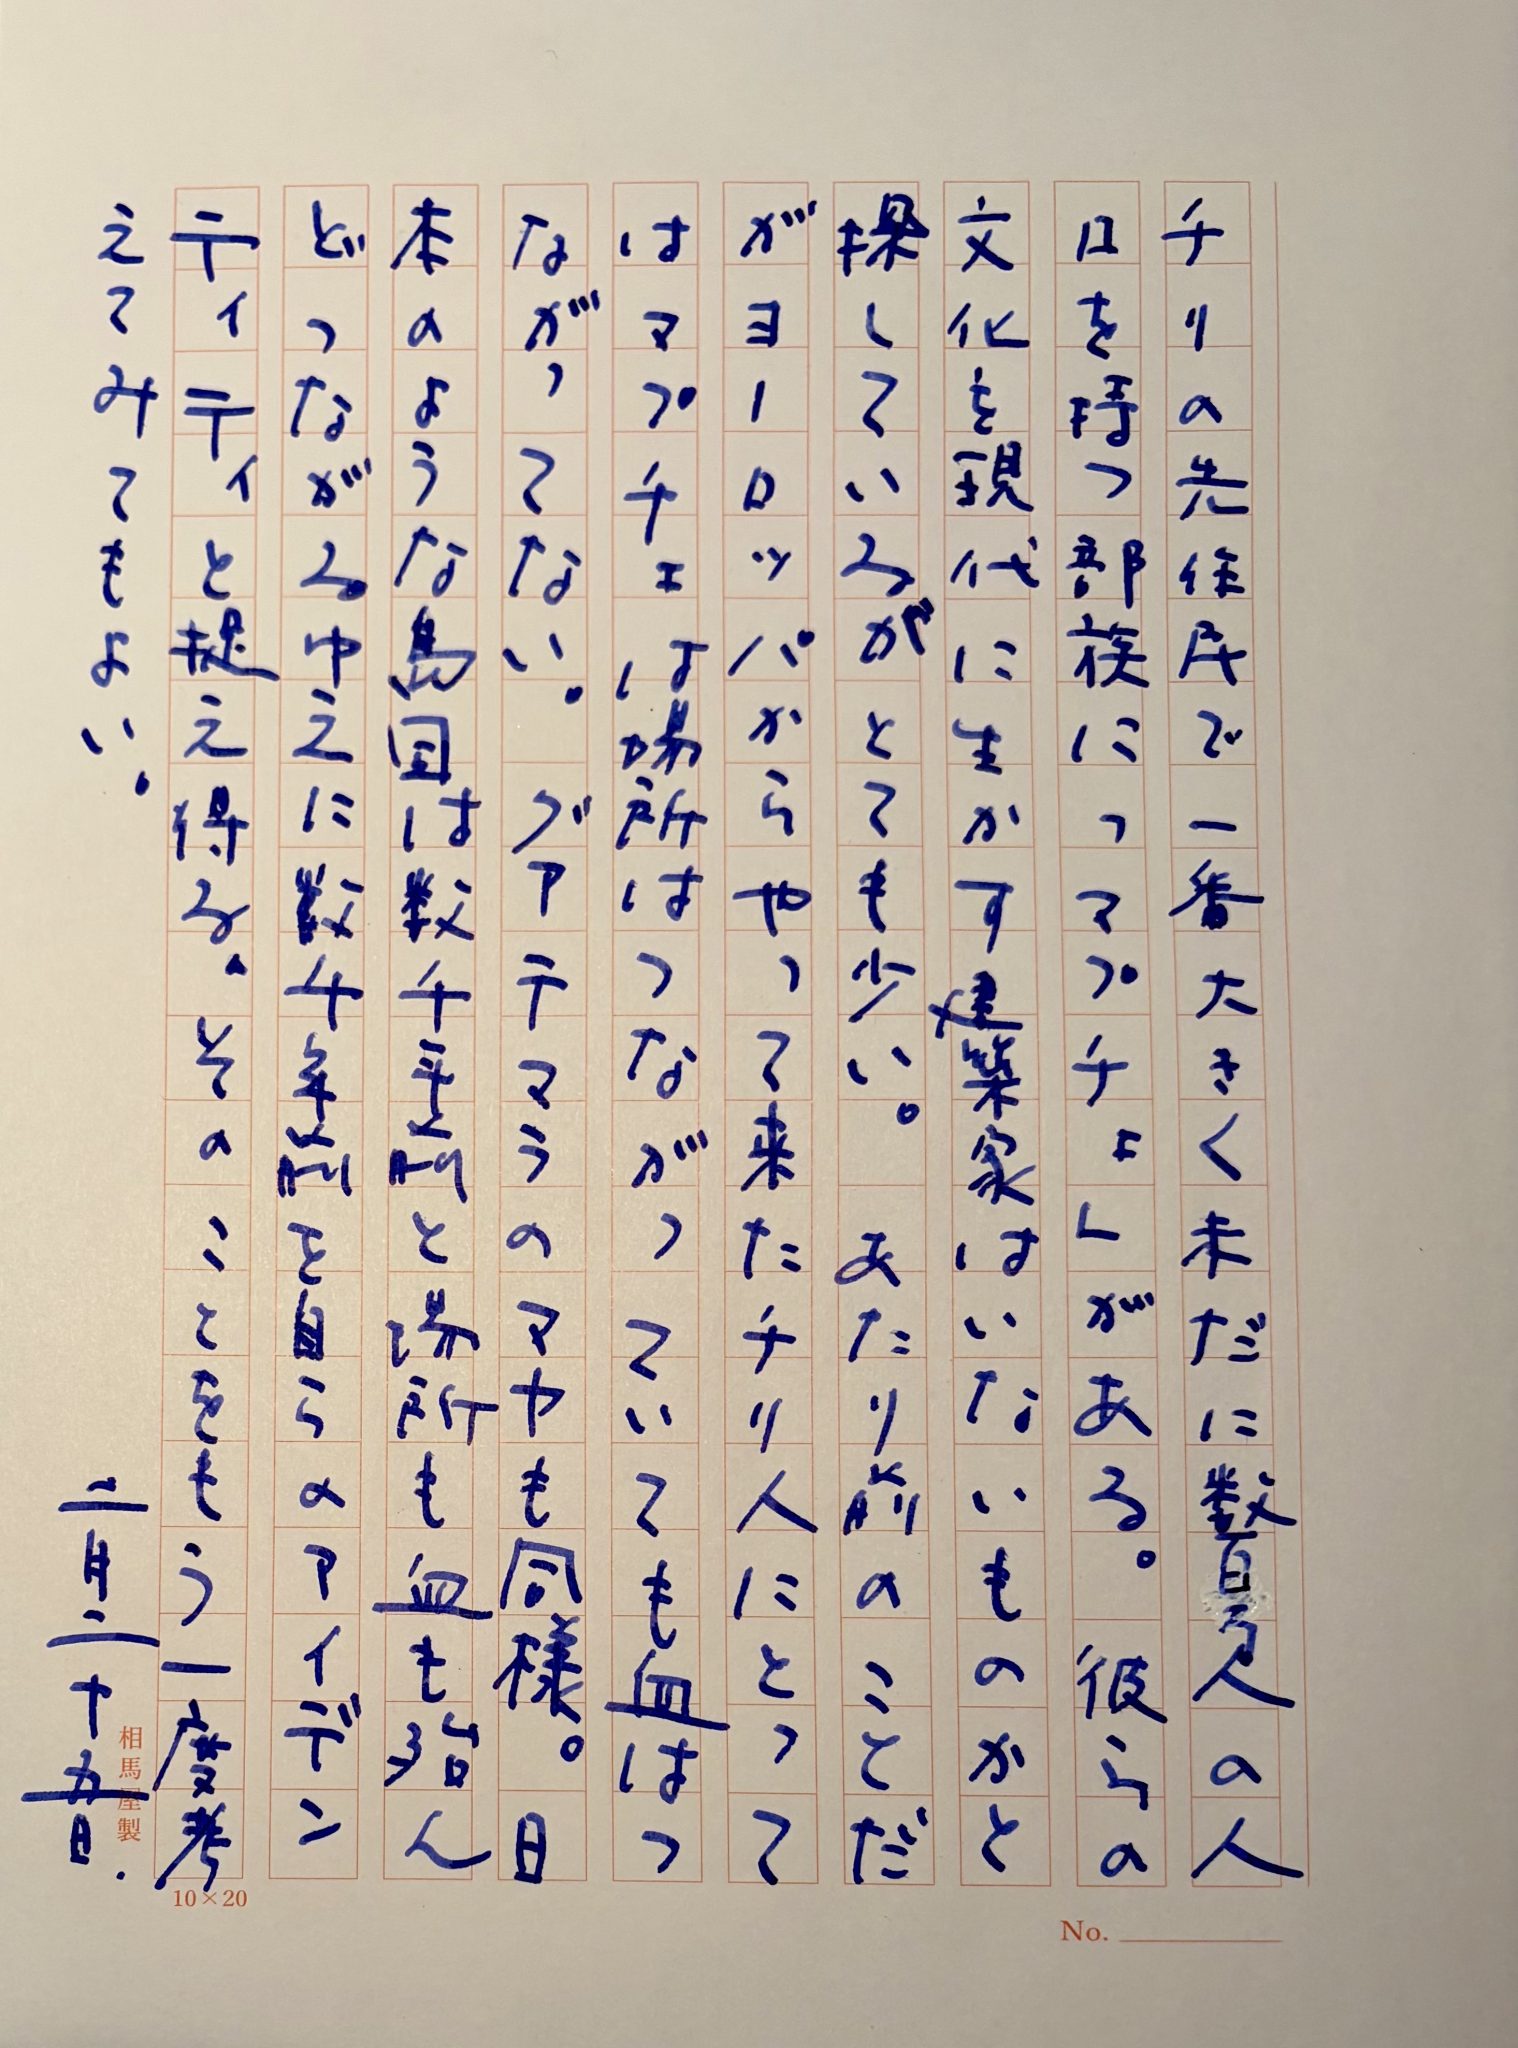 チリの先住民で一番大きく未だに数百万人の人
口を持つ部族に「マプチェ」がある。彼らの
文化を現代に生かす建築家はいないものかと
探しているがとても少い。あたり前のことだ
がヨーロッパからやって来たチリ人にとって
はマプチェは場所はつながっていても血はつ
ながってない。グアテマラのマヤも同様。日
本のような島国は数千年前と場所も血も殆ん
どつながる。ゆえに数千年前を自らのアイデン
ティティと捉え得る。そのことをもう一度考
えてみてもよい。
二月二十五日.
相馬屋製
10×20
No.